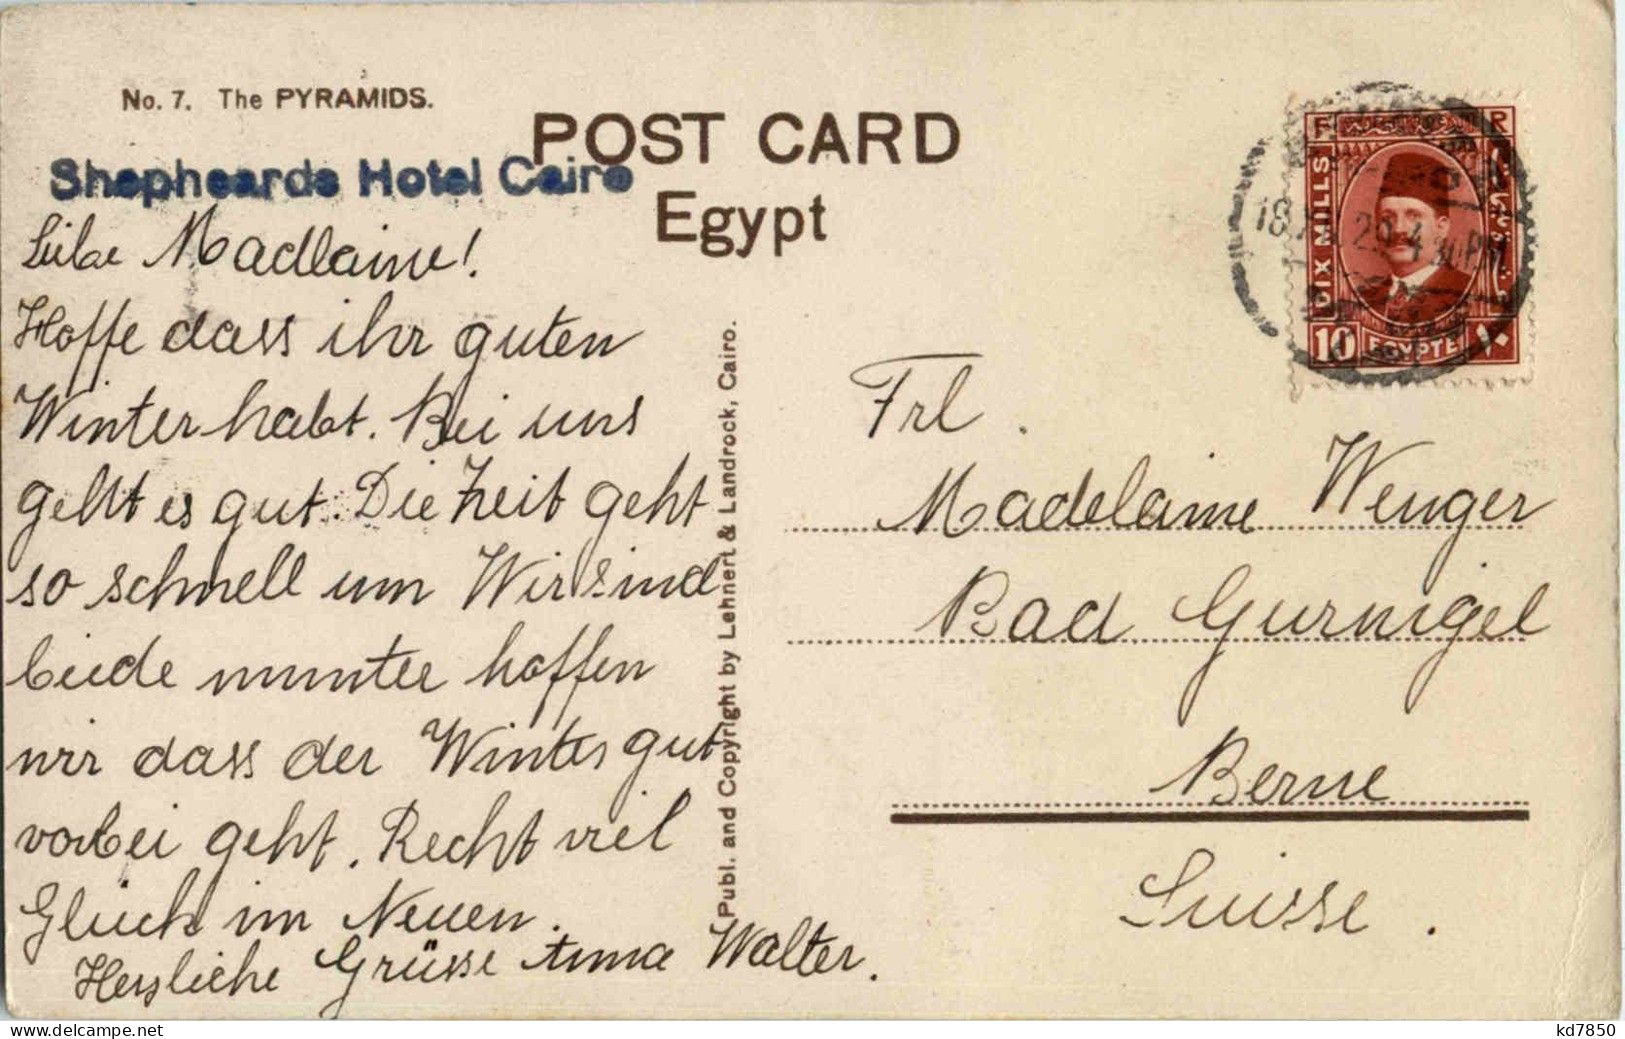 No. 7. The PYRAMIDS.
POST CARD
Egypt
Shepheards Hotel Cairo
Liebe Madlaine!
Hoffe dass ihr guten
Winter habt. Bei uns
geht es gut. Die Zeit geht
so schnell um Wir sind
beide munter hoffen
wir dass der Winter gut
vorbei geht. Recht viel
Glück im Neuen.
Herzliche Grüsse Anna Walter.
Publ. and Copyright by Lehnert & Landrock, Cairo.
F R
DIX MILLS
10 EGYPTE ١٠
4 30 PM
Frl.
Madelaine Wenger
Bad Gurnigel
Berne
Suisse.
kd7850